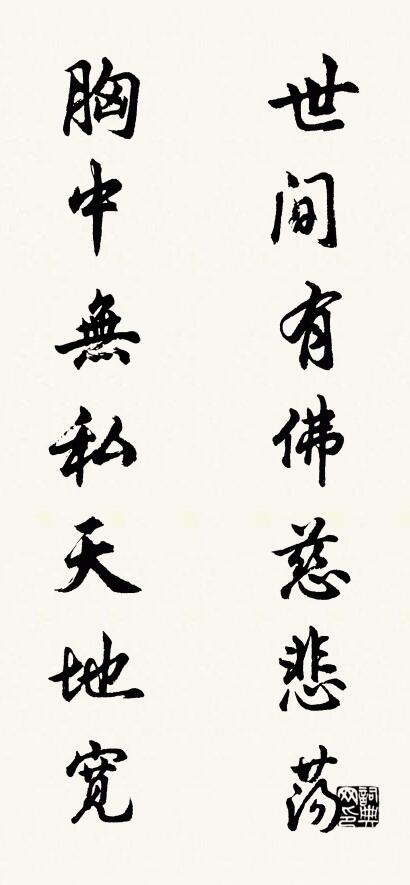 世间有佛慈悲荡
胸中無私天地寬
詞典网印